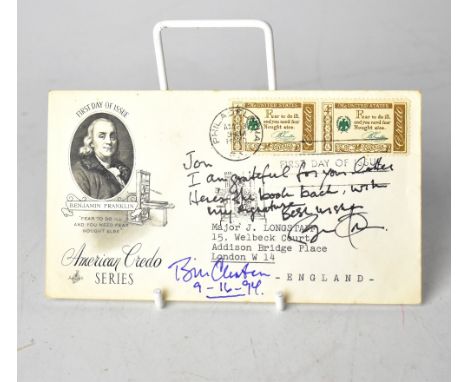 FIRST DAY OF ISSUE
BENJAMIN FRANKLIN
"FEAR TO DO ILL,
AND YOU NEED FEAR
NOUGHT ELSE"
American Credo
SERIES
PHILADELPHIA
UNITED STATES
Fear to do ill,
and you need fear
Nought else.
Credo
UNITED STATES
Fear to do ill,
and you need fear
Nought else.
Credo
FIRST DAY OF ISSUE
Jon
I am grateful for your letter
Here's the book back, with
my signature. Best wishes
Major J. LONGSTAFF
15. Welbeck Court
Addison Bridge Place
London W 14
-ENGLAND-
Bill Clinton
9-16-94.